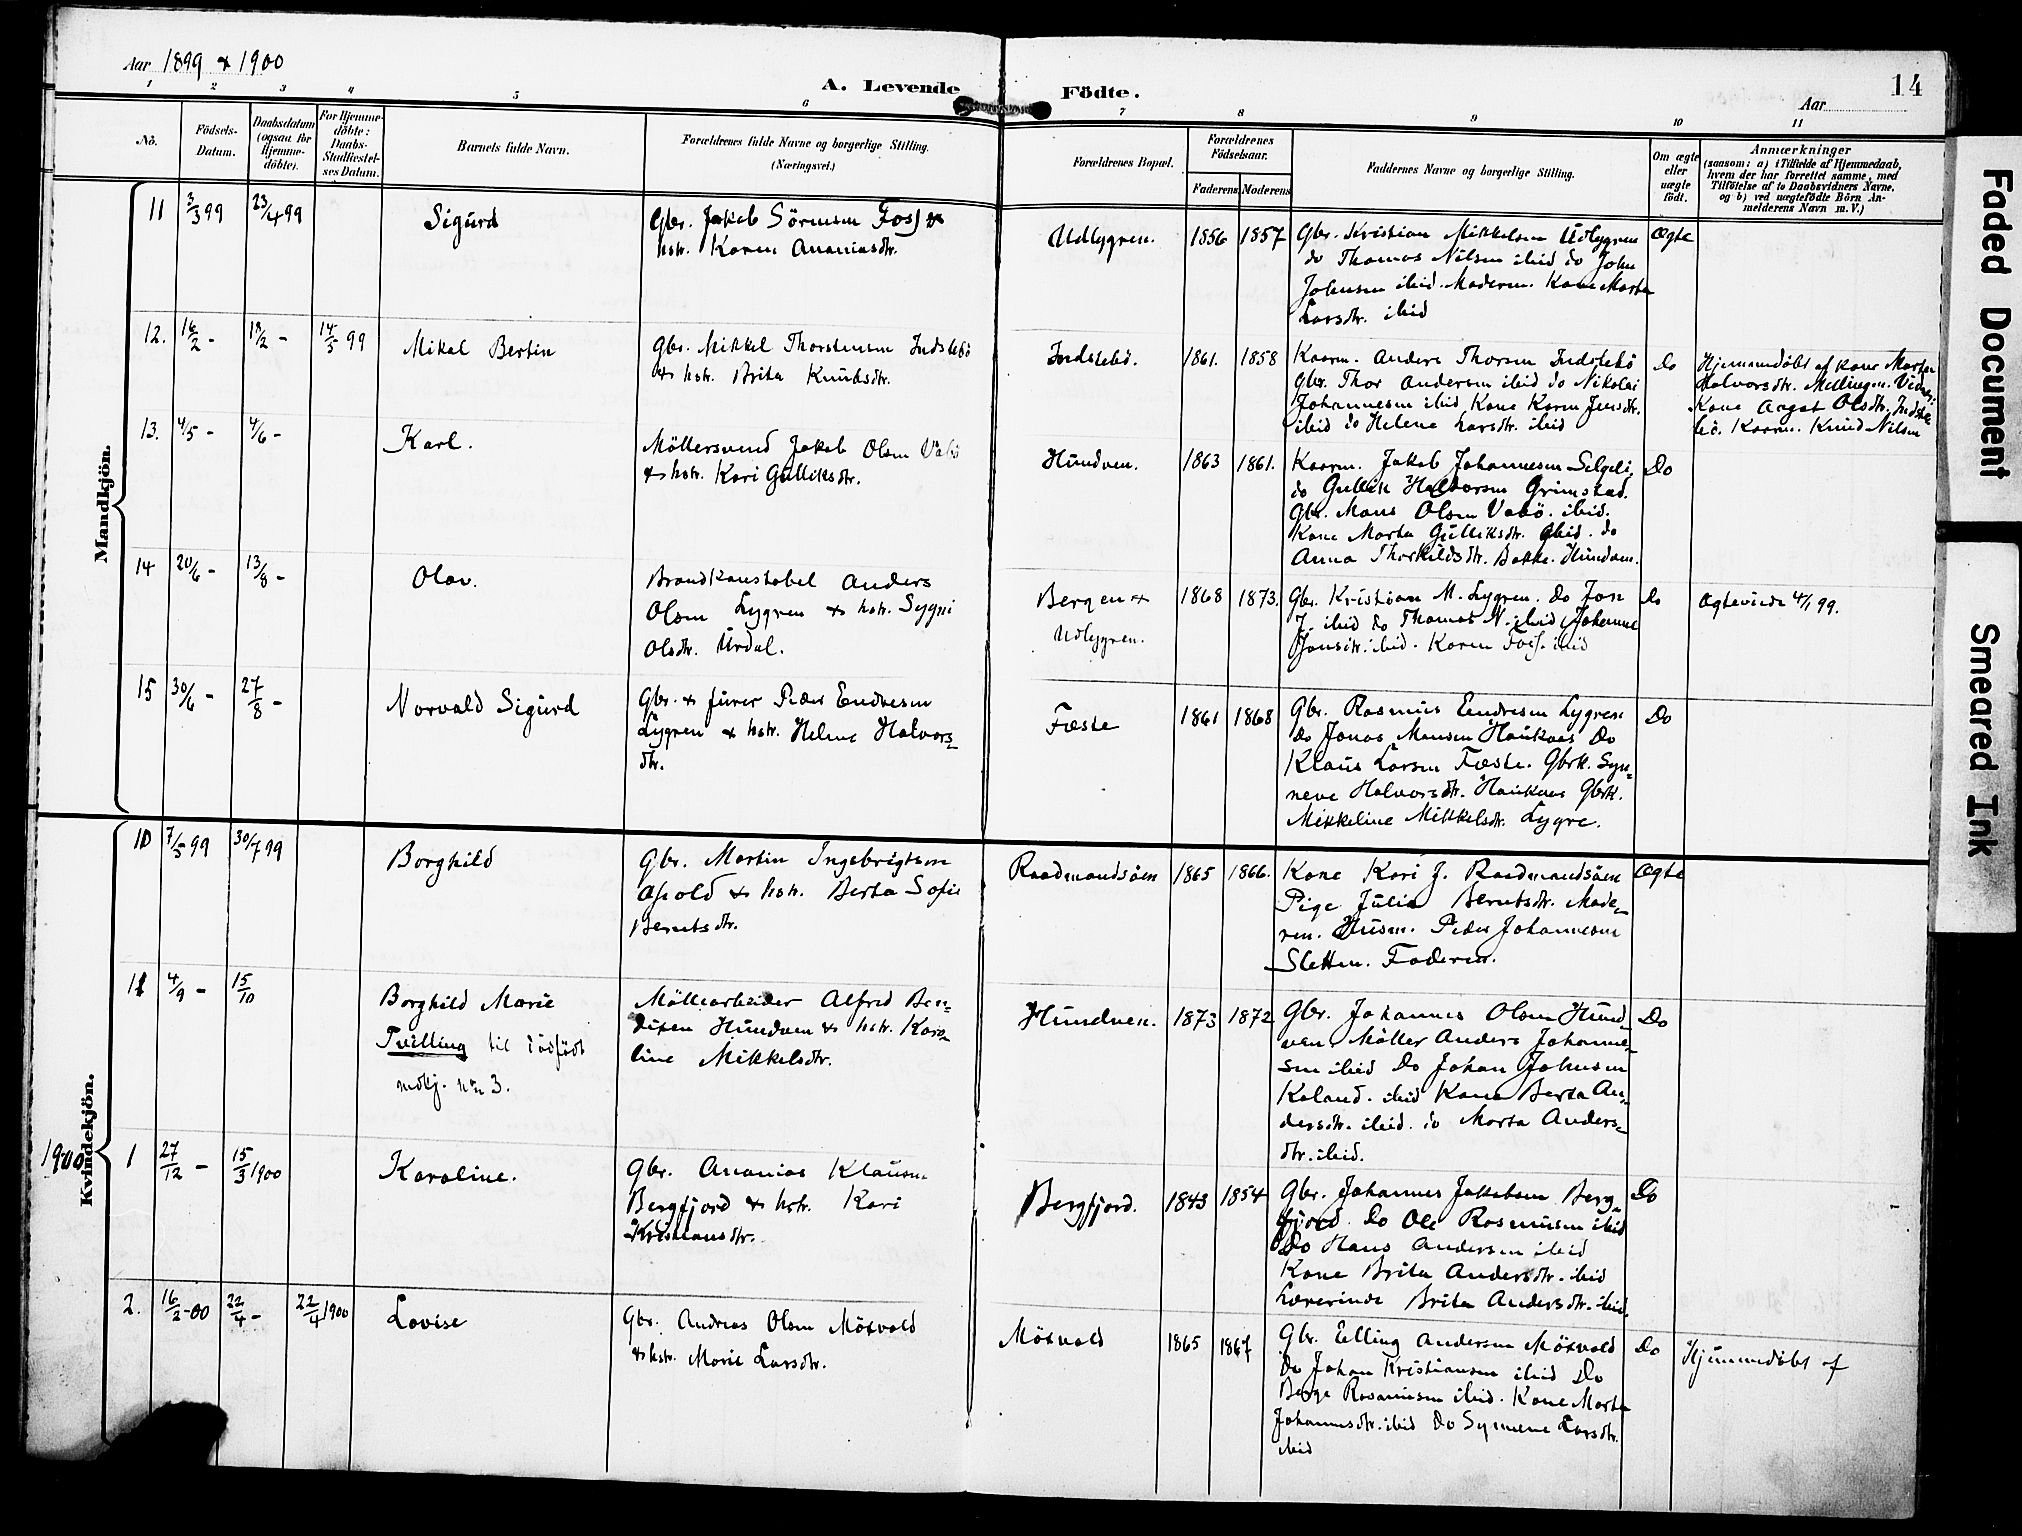 Aar 1899 & 1900
A. Levende Födte.
14
Aar
1 2 3 4 5 6 7 8 9 10 11
No.
Födsels-Datum.
Daabsdatum (ogsaa for Hjemme-döbte).
For Hjemme-döbte: Daabs-Stadfæstel-ses Datum.
Barnets fulde Navn.
Forældrenes fulde Navne og borgerlige Stilling.
(Næringsvei.)
Forældrenes Bopæl.
Forældrenes Födselsaar.
Faderens Moderens
Faddernes Navne og borgerlige Stilling.
Om ægte eller uægte født.
Anmærkninger
(saasom: a) i Tilfælde af Hjemmedaab,
hvem der har forrettet samme, med
Tilföielse af to Daabsvidners Navne,
og b) ved uægtefødte Börn An-
melderens Navn m. V.)
Mandkjön.
11 3/3 99 23/4 99
Sigurd
Gbr. Jakob Sörensen Foss &
hstr. Karen Ananiasdtr.
Udlygren.
1856 1857
Gbr. Kristian Mikkelsen Udlygren
do Thomas Nilsen ibid do John
Johnsen ibid. Moderen. Kone Marta
Larsdtr. ibid
Ægte
12. 16/2 - 18/2 - 14/5 99
Mikal Bertin
Gbr. Mikkel Thorstensen Indstebö
& hstr. Brita Knutsdtr.
Indstebö.
1861. 1858
Kaarm. Anders Thorsen Indstebö
Gbr. Thor Andersen ibid do Nikolai
Johannesen ibid Kone Karen Jensdtr.
ibid do Helene Larsdtr. ibid
Do
Hjemmedöbt af Kone Marta
Halvorsdtr. Mellingen. Vidner:
Kone Aagot Olsdtr. Indste
bö. Kaarm. Knud Nilsen
13. 4/5 - 4/6 -
Karl.
Möllersvend Jakob Olsen Vabö
& hstr. Kari Gulliksdtr.
Hundven.
1863 1861.
Kaarm. Jakob Johannesen
do Gullik Halvorsen Grimstad.
Gbr. Mons Olsen Vabö. ibid.
Kone Marta Gulliksdtr. ibid. do
Anna Thorkildsdtr. Bakke. Hundven.
Do
14 20/6 - 13/8 -
Olav.
Brandkonstabel Anders
Olsen Lygren & hstr. Sygni
Olsdtr. Urdal.
Bergen &
Udlygren.
1868 1873.
Gbr. Kristian M. Lygren. do Jon
J. ibid do Thomas N. ibid Johanne
Jonsdtr. ibid. Karen Foss. ibid
Do
Ægteviede 4/1 99.
15 30/6 - 27/8 -
Norvald Sigurd
Gbr. & furer Peder Endresen
Lygren & hstr. Helene Halvors-
dtr.
Fæste
1861 1868
Gbr. Rasmus Endresen Lygren
Do Jonas Monsen Haukaas Do
Klaus Larsen Fæste. Gbrk. Syn-
neve Halvorsdtr. Haukaas Gbrk.
Mikkeline Mikkelsdtr. Lygre.
Do
Kvindekjön.
10 7/5 99 30/7 99
Borghild
Gbr. Martin Ingebrigtsen
Apold & hstr. Berta Sofie
Berntsdtr.
Raadmandsöen
1865 1866.
Kone Kari J. Raadmandsöen
Pige Julia Berntsdtr. Mode-
ren. Husm. Peder Johannesen
Sletten. Faderen.
Ægte
11 4/9 - 15/10
Borghild Marie
Tvilling til dödfödt
mdkj. No 3.
Möllearbeider Alfred Ben-
dixen Hundven & hstr. Karo-
line Mikkelsdtr.
Hundven.
1873 1872
Gbr. Johannes Olsen Hund-
ven. Möller Anders Johanne-
sen ibid Do Johan Johnsen
Kaland. ibid Kone Berta An-
dersdtr. ibid. do Marta Anders-
dtr. ibid.
Do
1900
1 27/12 - 15/3 1900
Karoline.
Gbr. Ananias Klausen
Bergfjord & hstr. Kari
Kristiansdtr.
Bergfjord.
1843 1854
Gbr. Johannes Jakobsen Berg-
fjord. Do Ole Rasmusen ibid
Do Hans Andersen ibid
Kone Brita Andersdtr. ibid
Lærerinde Brita Andersdtr. ibid.
Do
2. 16/2-00 22/4 - 22/4 1900
Lovise
Gbr. Andreas Olsen Mösvold
& hstr. Marie Larsdtr.
Mösvold
1865 1867
Gbr. Elling Andersen Mösvold
Do Johan Kristiansen ibid Do
Berge Rasmusen ibid. Kone Marta
Johannesdtr. ibid Do Synneve Larsdtr.
ibid
Do
Hjemmedöbt af
Faded Document
Smeared Ink